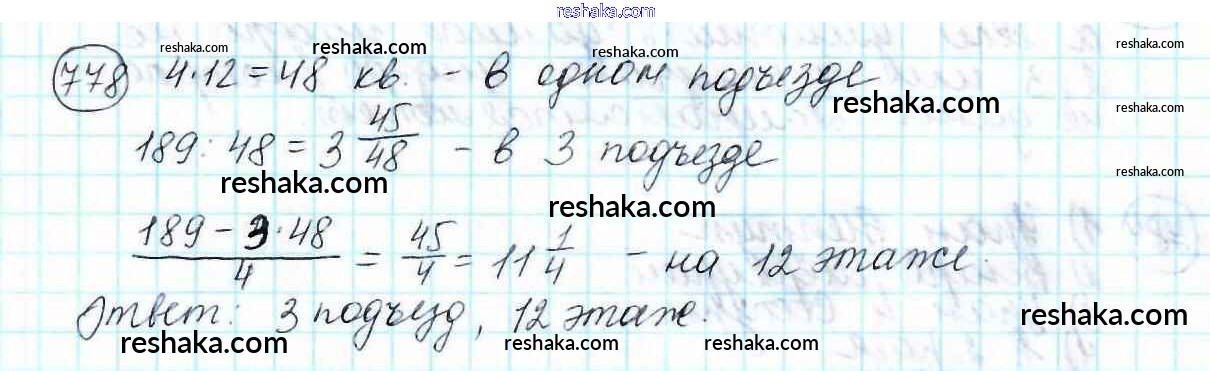 reshaka.com
778 4·12=48 кв. - в одном подъезде
189:48=3 45/48 - в 3 подъезде
(189-3·48)/4 = 45/4 = 11 1/4 - на 12 этаже.
Ответ: 3 подъезд, 12 этаж.
reshaka.com
reshaka.com
reshaka.com
reshaka.com
reshaka.com
reshaka.com
reshaka.com
reshaka.com
reshaka.com
reshaka.com
reshaka.com
reshaka.com